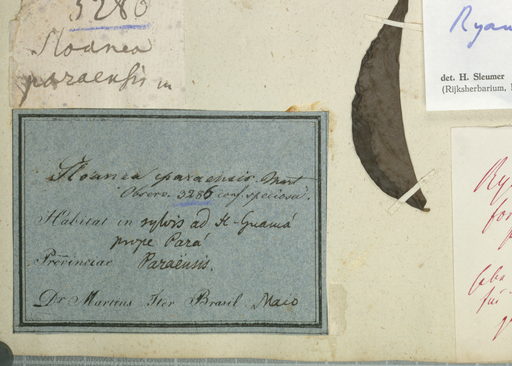 3286
Sloanea
paraensis m
Sloanea paraensis. Mart
Observ. 3286 conf. speciosa.
Habitat in sylvis ad fl. Guamá
prope Pará
Provinciae Paraënsis.
Dr Martius Iter Brasil Maio
Ryan
det. H. Sleumer
(Rijksherbarium,